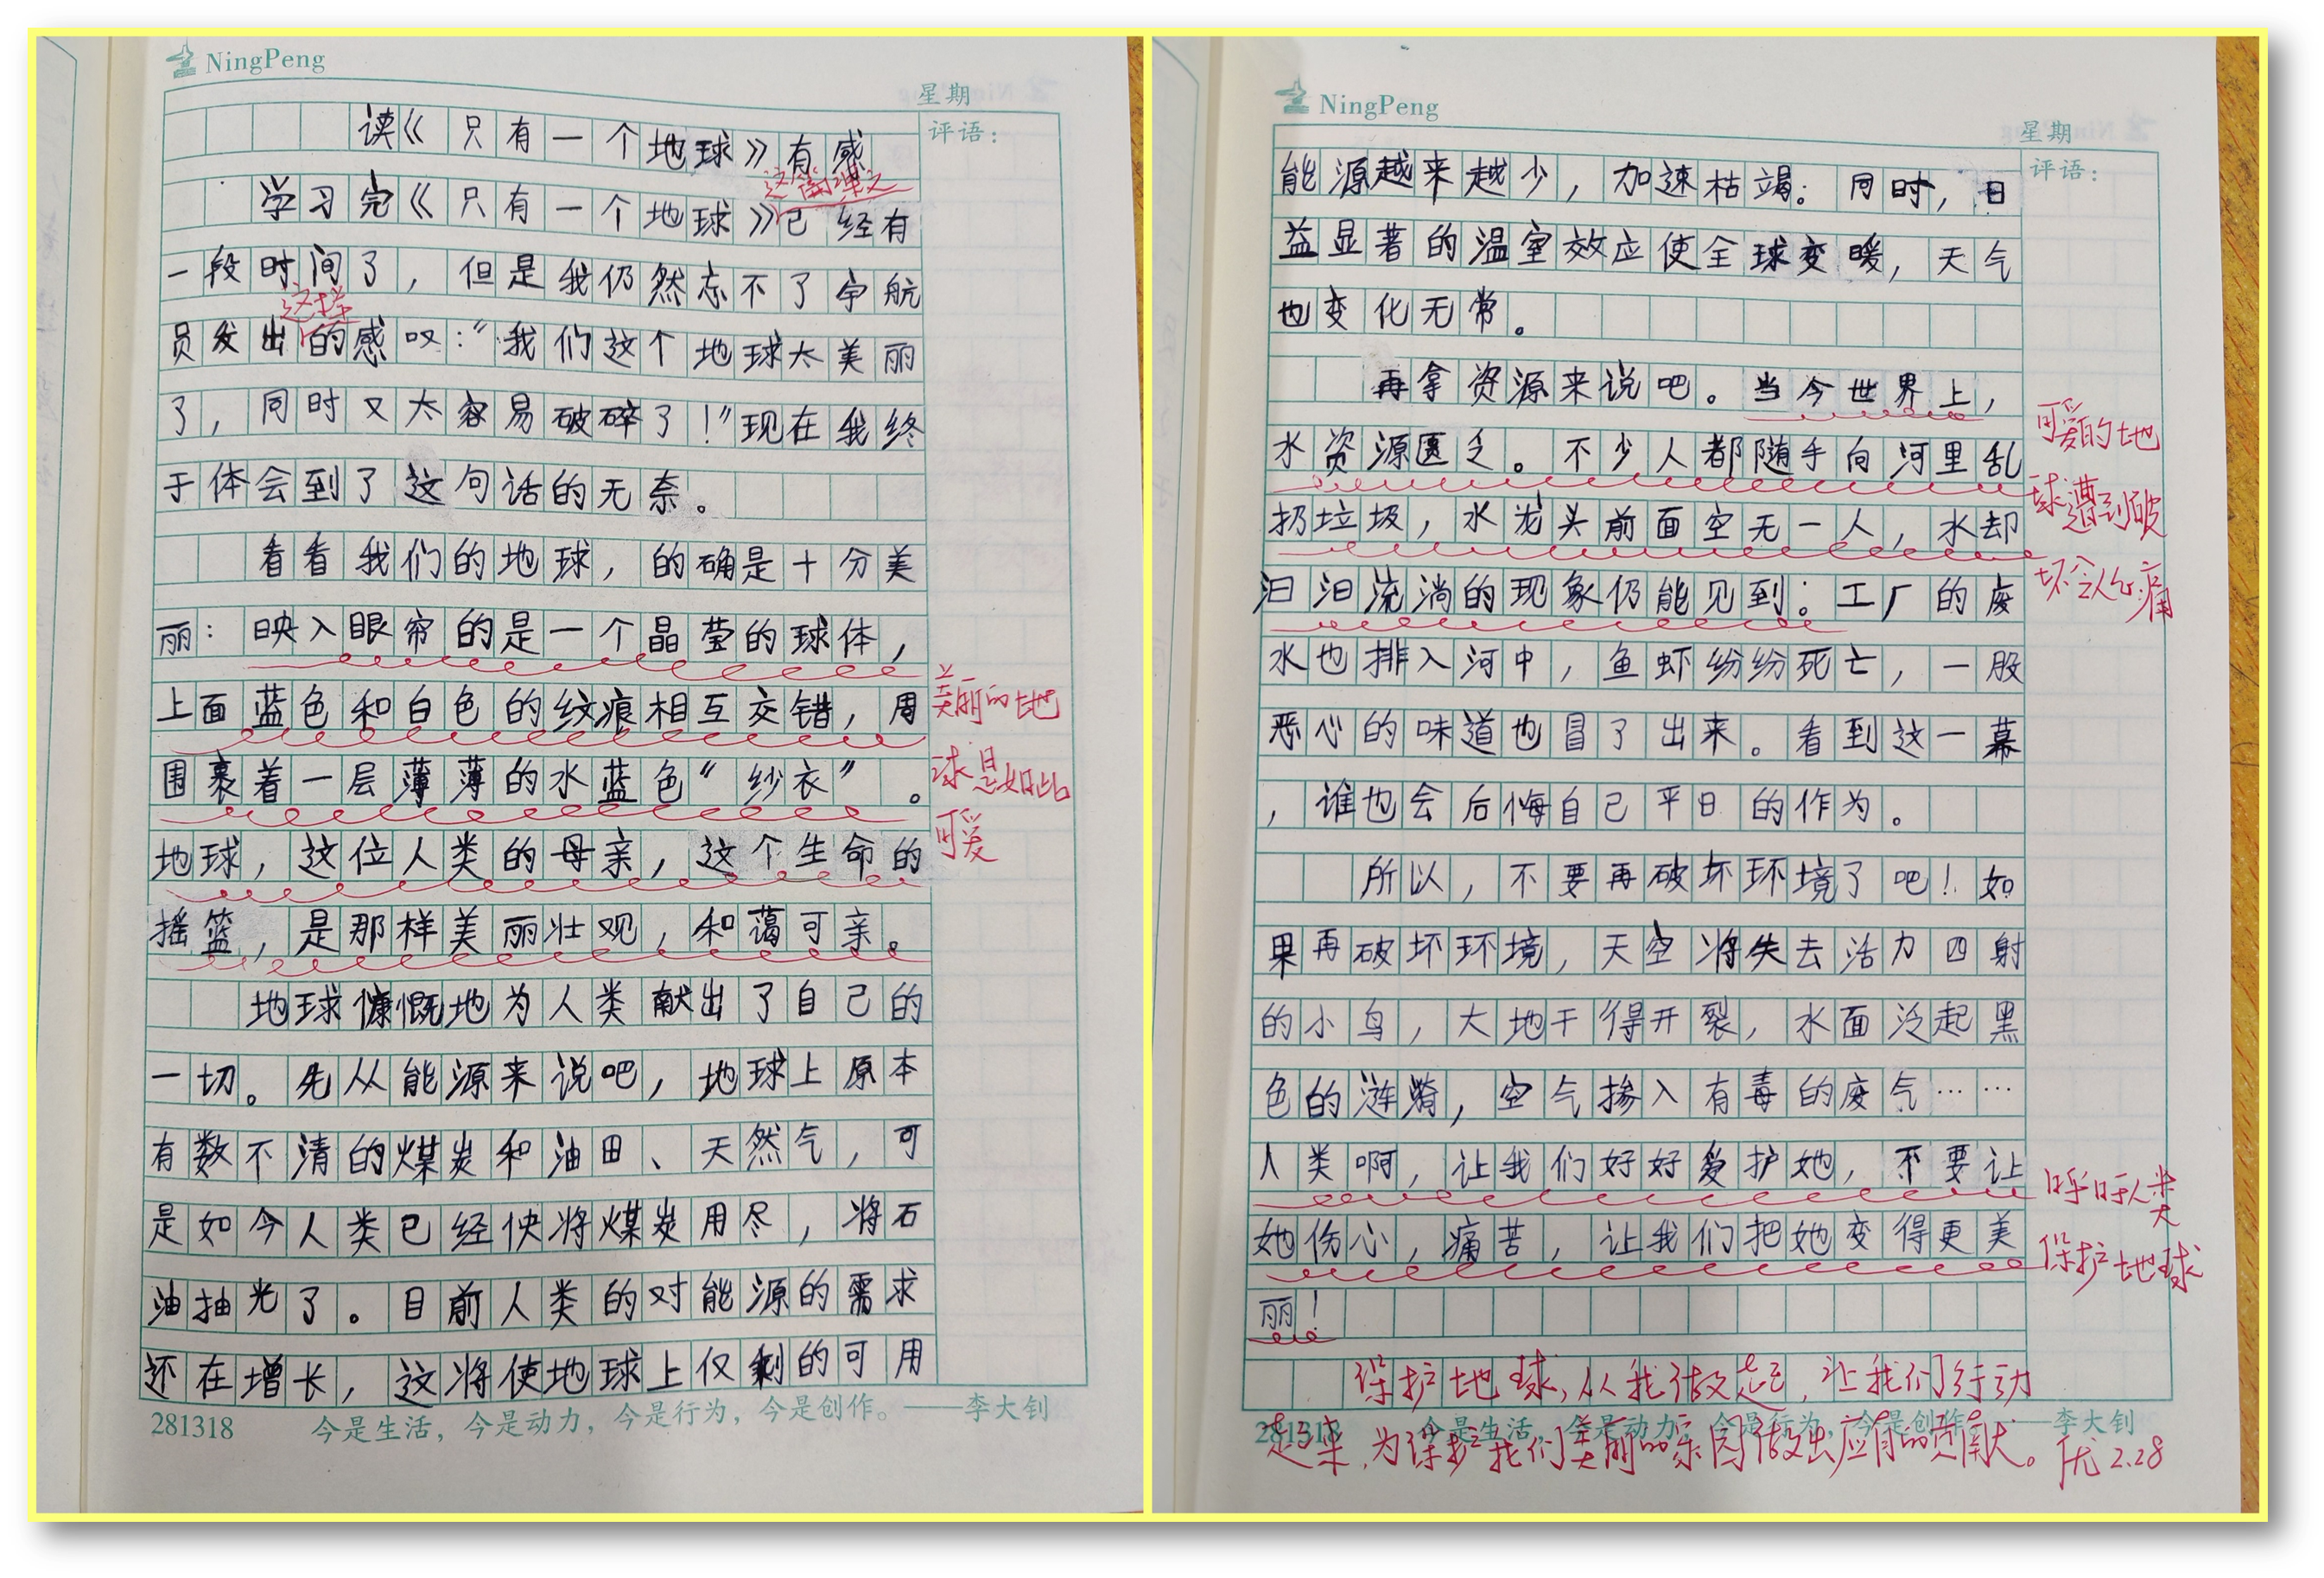 NingPeng
星期
评语：
读《只有一个地球》有感
这篇课文
学习完《只有一个地球》已经有
一段时间了，但是我仍然忘不了宇航
这样
员发出的感叹：“我们这个地球太美丽
了，同时又太容易破碎了！”现在我终
于体会到了这句话的无奈。
看看我们的地球，的确是十分美
丽：映入眼帘的是一个晶莹的球体，
上面蓝色和白色的纹痕相互交错，周
围裹着一层薄薄的水蓝色“纱衣”。
地球，这位人类的母亲，这个生命的
摇篮，是那样美丽壮观，和蔼可亲。
美丽的地
球是如此
可爱
地球慷慨地为人类献出了自己的
一切。先从能源来说吧，地球上原本
有数不清的煤炭和油田、天然气，可
是如今人类已经快将煤炭用尽，将石
油抽光了。目前人类的对能源的需求
还在增长，这将使地球上仅剩的可用
281318 今是生活，今是动力，今是行为，今是创作。——李大钊
NingPeng
星期
评语：
能源越来越少，加速枯竭。同时，日
益显著的温室效应使全球变暖，天气
也变化无常。
再拿资源来说吧。当今世界上，
水资源匮乏。不少人都随手向河里乱
扔垃圾，水龙头前面空无一人，水却
汩汩流淌的现象仍能见到；工厂的废
可爱的地
球遭到破
坏令人心痛
水也排入河中，鱼虾纷纷死亡，一股
恶心的味道也冒了出来。看到这一幕
，谁也会后悔自己平日的作为。
所以，不要再破坏环境了吧！如
果再破坏环境，天空将失去活力四射
的小鸟，大地干得开裂，水面泛起黑
色的涟漪，空气掺入有毒的废气……
人类啊，让我们好好爱护她，不要让
她伤心，痛苦，让我们把她变得更美
丽！
呼吁人类
保护地球
保护地球，从我做起，让我们行动
281318 今是生活，今是动力，今是行为，今是创作。——李大钊
起来，为保护我们美丽的家园做出应有的贡献。优 2.28